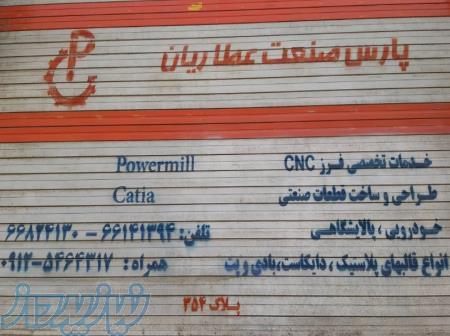 پارس صنعت عطاریان
خدمات تخصصی فرز CNC Powermill
طراحی و ساخت قطعات صنعتی Catia
خودرویی ، پالایشگاهی تلفن: ۶۶۱۴۱۳۹۴ - ۶۶۸۲۴۱۳۰
انواع قالبهای پلاستیک ، دایکاست، بادی و پت همراه: ۰۹۱۲-۵۴۶۴۳۱۷
پلاک ۳۵۴
نیازپرداز